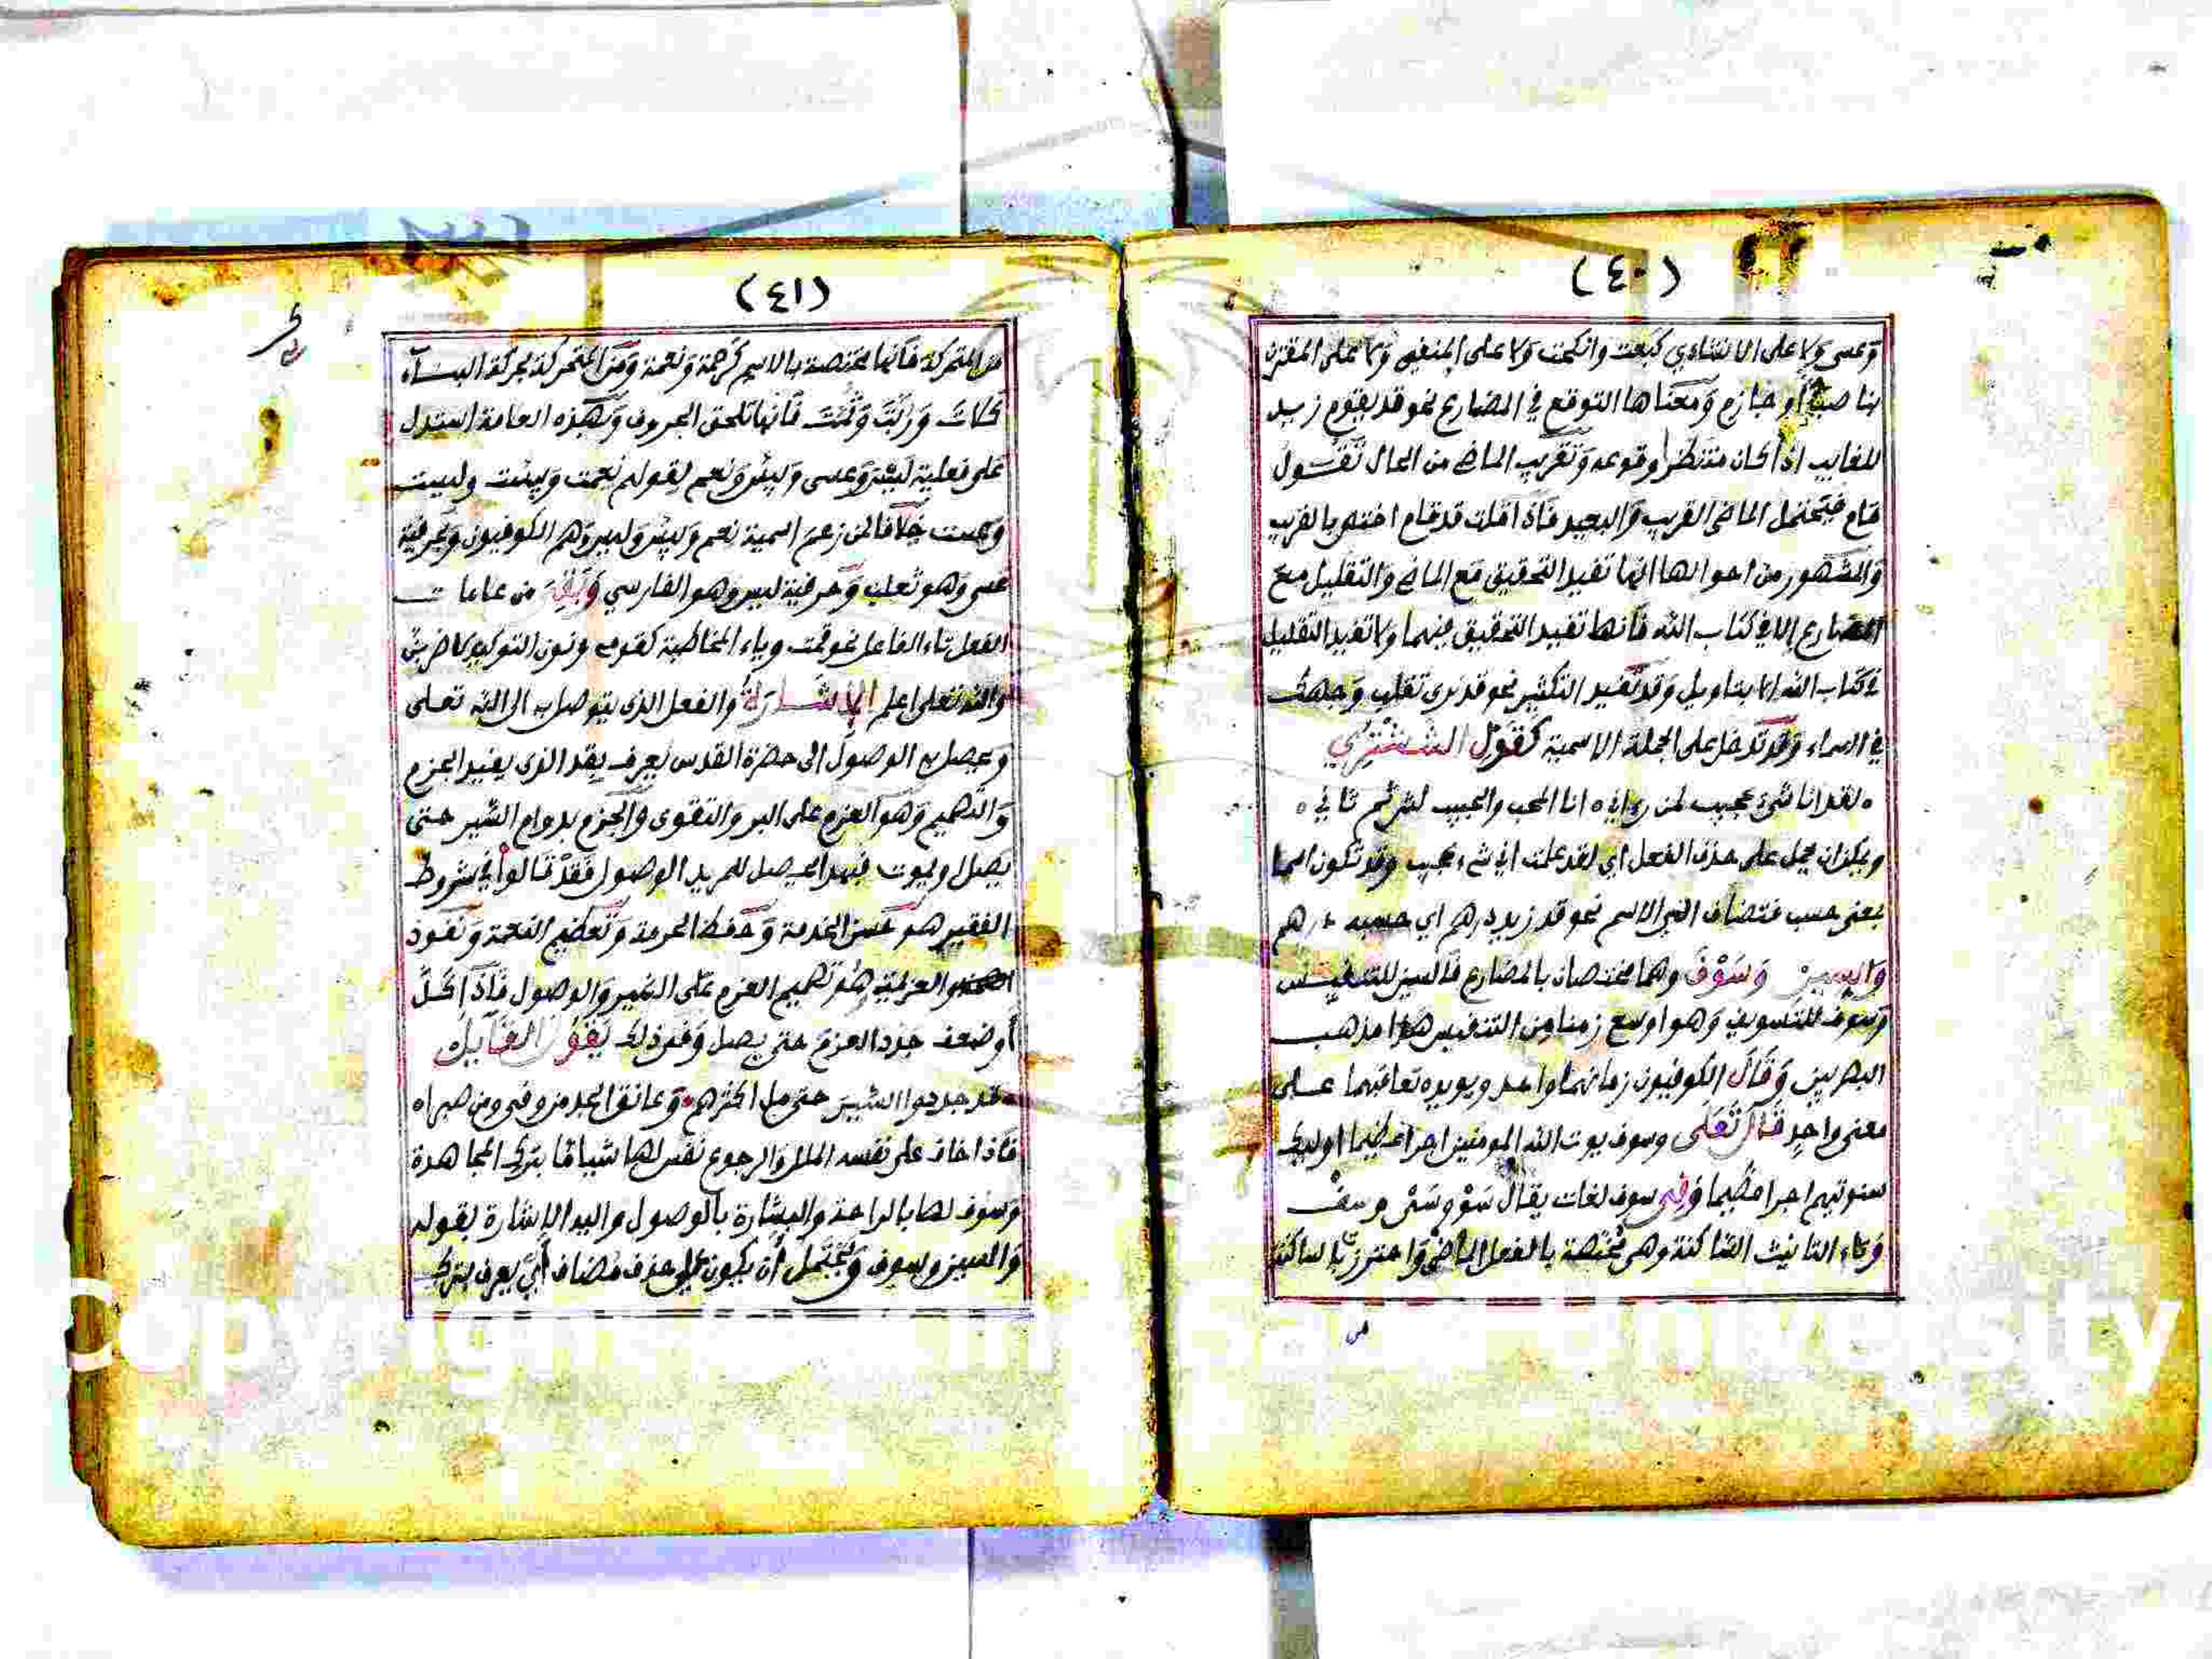 (٤٠)
وعسى ولا على الانشاءي كبعت وانكحت ولا على المنفي ولا على المقترن
بناصب او جازم ومعناها التوقع في المضارع نحو قد يقوم زيد
للغايب اذا كان منتظرا وقوعه وتقريب الماضي من الحال تقول
قام فيحتمل الماضي القريب والبعيد فاذا قلت قد قام اختص بالقريب
والمشهور من احوالها انها تفيد التحقيق مع الماضي والتقليل مع
المضارع الا في كتاب الله فانها تفيد التحقيق فيهما ولا تفيد التقليل
في كتاب الله الا بتاويل وقد تفيد التكثير نحو قد نرى تقلب وجهك
في السماء وقد تدخل على الجملة الاسمية كقول الششتري
ه لقد انا شيء عجيب لمن رءاني ه انا المحب والحبيب لش ثم ثاني ه
ويمكن ان يحمل على حذف الفعل اي لقد علمت اني شيء عجيب وقد تكون اسما
بمعنى حسب فتضاف الى الاسم نحو قد زيد درهم اي حسبه درهم
والسين وسوف وهما مختصان بالمضارع فالسين للتنفيس
وسوف للتسويف وهو اوسع زمنا من التنفيس هذا مذهب
البصريين وقال الكوفيون زمانهما واحد ويويده تعاقبهما على
معنى واحد قال تعلى وسوف يوت الله المومنين اجرا عظيما اوليك
سنوتيهم اجرا عظيما وفي سوف لغات يقال سو وسى وسف
وتاء التانيث الساكنة وهي مختصة بالفعل الماضي واحترز بالساكنة
من
(٤١)
من المتحركة فانها مختصة بالاسم كرحمة ونعمة ومن المتحركة بحركة البناء
كلات وربت وثمت فانها تلحق الحروف وبهذه العلامة استدل
على فعلية ليس وعسى وبيس ونعم لقولهم نعمت وبيست وليست
وعست خلافا لمن زعم اسمية نعم وبيس وليس وهم الكوفيون وحرفية
عسى وهو ثعلب وحرفية ليس وهو الفارسي وبقي من علامات
الفعل تاء الفاعل نحو قمت وياء المخاطبة كقومي ونون التوكيد كاضربن
والله تعلى اعلم الاشارة والفعل الذي يتوصل به الى الله تعلى
ويحصل به الوصول الى حضرة القدس يعرف بقد الذي يفيد الجزم
والتصميم وهو العزم على البر والتقوى والجزم بدوام السير حتى
يصل او يموت فبهذا يحصل للمريد الوصول فقد قالوا في شروط
الفقير هو حسن الخدمة وحفظ الحرمة وتعظيم النعمة ونفوذ
والعزيمة هو تصميم العزم على السير والوصول فاذا كل
او ضعف جدد العزم حتى يصل وفي ذلك يقول القايل
قد جددوا السير حتى مل اكثرهم وعانق المجد من وفى ومن صبرا ه
فاذا خاف على نفسه الملل والرجوع نفس لها شيا ما بترك المجاهدة
وسوف لها بالراحة والبشارة بالوصول واليه الاشارة بقوله
والسين وسوف ويحتمل ان يكون على حذف مضاف اي يعرف بترك